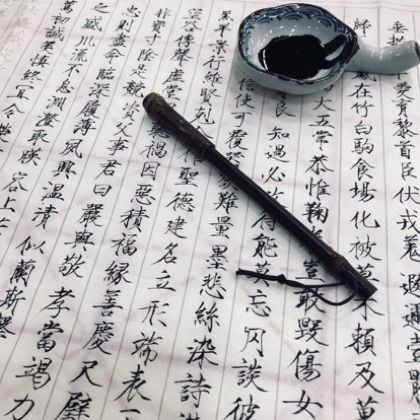 黎首臣伏戎羌遐邇壹
歸在竹白駒食場化被草木賴及萬
大五常恭惟鞠豈敢毀傷女
良知過必得能莫忘罔談彼
信使可覆器欲難量墨悲絲染詩
羊景行維賢剋念作聖德建名立形端表
空谷傳聲虛堂習聽禍因惡積福緣善慶尺璧
非寶寸陰是競資父事君曰嚴與敬孝當竭力
忠則盡命臨深履薄夙興溫凊似蘭斯馨
之盛川流不息淵澄取暎容止
初誠美慎終宜令榮